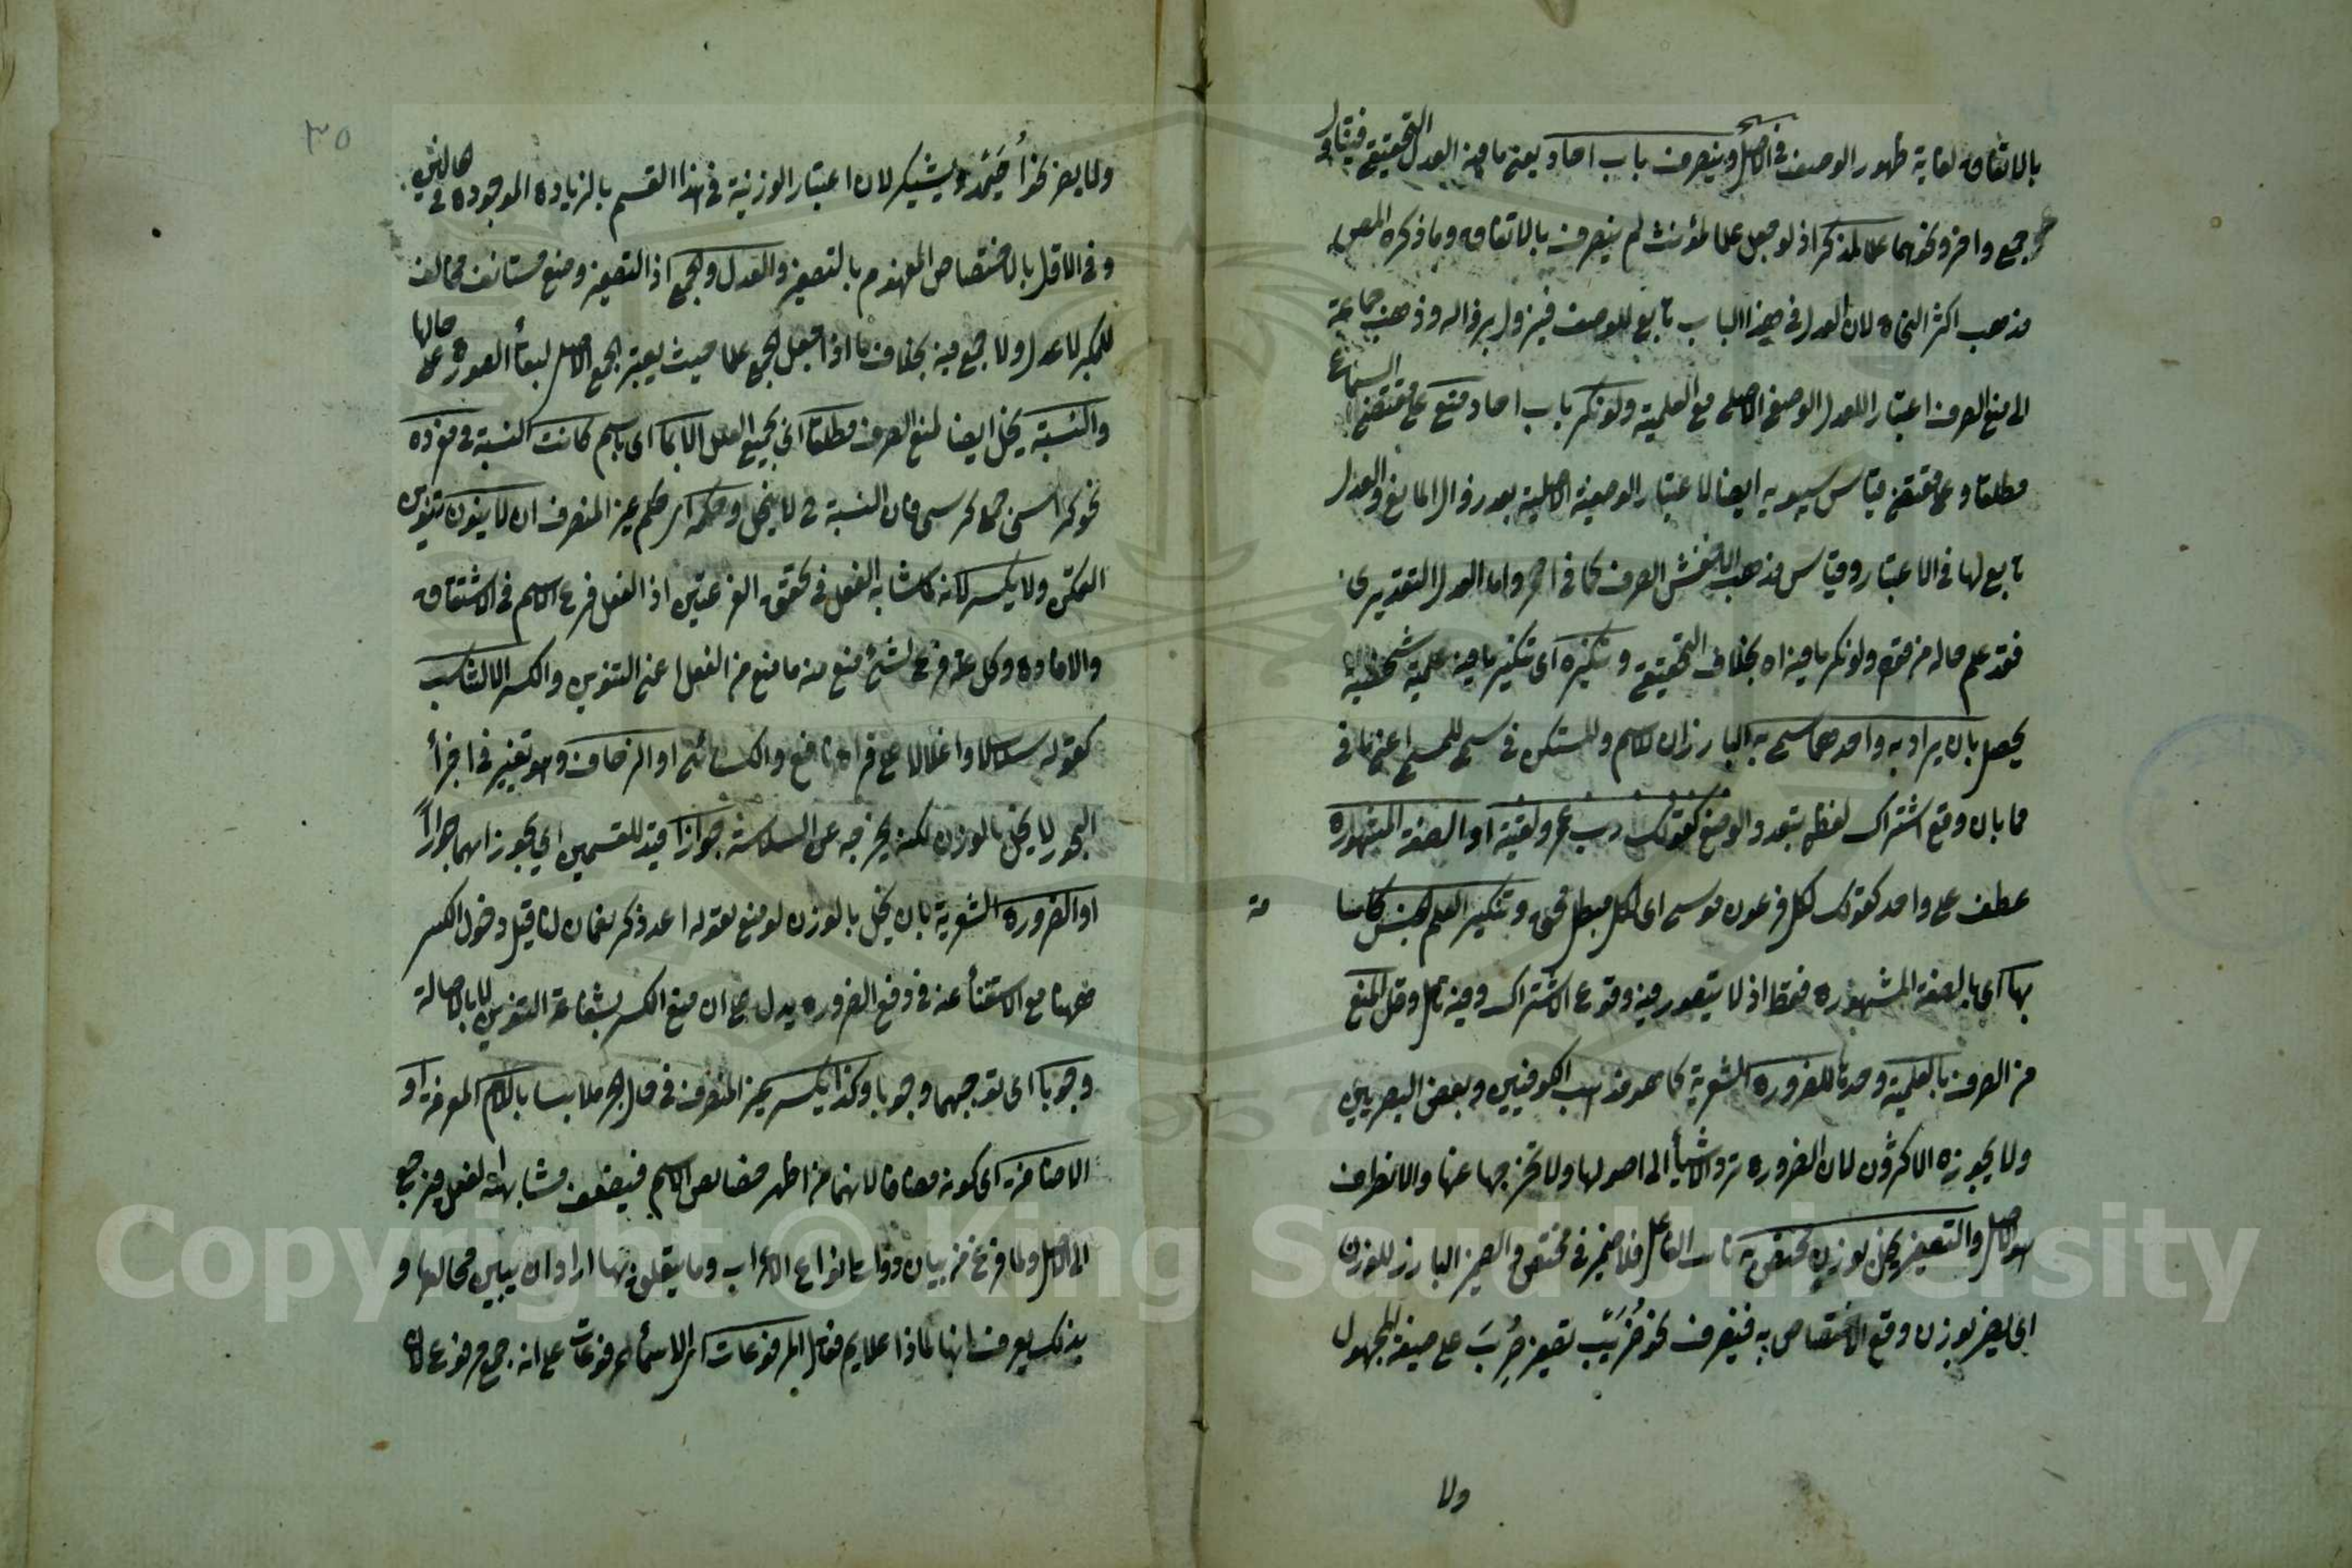 بالاتفاق لغاية ظهور الوصف في الاصل وينصرف باب احاد يعني ما فيه العدل التحقيقي فيتناول
نحو جمع واخر ونحوهما علما لمذكر اذ لو جعل علما لمؤنث لم ينصرف بالاتفاق وما ذكره المص
مذهب اكثر النحاة لان العدل في هذا الباب تابع للوصف فيزول بزواله وذهب جماعة
الى منع الصرف اعتبارا للعدل والوصف الاصلي مع العلمية ولو نكر باب احاد منع على مقتضى السماع
مطلقا وعلى مقتضى قياس سيبويه ايضا لاعتبار الوصفية الاصلية بعد زوال المانع والعدل
تابع لها في الاعتبار وقياس مذهب الاخفش الصرف كما في احمر واما العدل التقديري
فقد علم حاله من قوله ولو نكر ما فيه اه بخلاف التحقيقي وتنكيره اى تنكير ما فيه علمية شخصية
يحصل بان يراد به واحد مما سمى به البارزان للاسم وللمستكن في سمى للمسمى اعني ما في
مما بان وقع اشتراك لفظي بتعدد الوضع كقولك رب عمر ولقيته او الصفة المشهورة
عطف على واحد كقولك لكل فرعون موسى اى لكل مبطل محق وتنكير العلم الجنس كاسا
مة
بها اى بالصفة المشهورة فقط اذ لا يتصور فيه وقوع الاشتراك وفيه تامل وقل المنع
من الصرف بالعلمية وحدها للضرورة الشعرية كما هو مذهب الكوفيين وبعض البصريين
ولا يجوزه الاكثرون لان الضرورة ترد الاشياء الى اصولها ولا تخرجها عنها والانصراف
هو الاصل والتصغير يخل بوزن يختص به نائب الفاعل فلا ضمير في مختص والضمير البارز للوزن
اى يضر بوزن وقع الاختصاص به فينصرف نحو ضُرَيِّب تصغير ضُرِبَ على صيغة المجهول
ولا
٣٥
ولا يضر نحو اُحَيْمِد ويشيكر لان اعتبار الوزنية في هذا القسم بالزيادة الموجودة في هاتين
وفي الاول بالاختصاص المنهدم بالتصغير والعدل والجمع اذ التصغير وضع مستانف مخالف
للمكبر لا عدل ولا جمع فيه بخلاف ما اذا جعل الجمع علما حيث يعتبر الجمع الاصلي لبقاء الصورة على حالها
والنسبة يخل ايضا لمنع الصرف مطلقا اى بجميع العلل الا بما اى باسم كانت النسبة في مفرده
نحو كراسي جمع كرسي فان النسبة في لا يخل وحكمه اى حكم غير المنصرف ان لا ينون تنوين
التمكن ولا يكسر لانه كما شابه الفعل في تحقق الفرعيتين اذ الفعل فرع الاسم في الاشتقاق
والافادة وكل علة فرع لشئ منع منه ما منع من الفعل اعني التنوين والكسر الا للتناسب
كقوله سلاسلا واغلالا على قراءة نافع والكسائي او الزحاف وهو تغيير في اجزاء
البحور لا يخل بالوزن لكنه يخرجه عن السلاسة جوازا قيد للقسمين اى يجوز انهما جوازا
او الضرورة الشعرية بان يخل بالوزن لو منع كقوله اعد ذكر نعمان لنا قيل دخول الكسر
ههنا مع الاستغناء عنه في دفع الضرورة يدل على ان منع الكسر بشفاعة التنوين لا بالاصالة
وجوبا اى توجبهما وجوبا وكذا يكسر غير المنصرف في حال الجر ملابسا باللام المعرفة او
الاضافة اى كونه مضافا لانهما من اظهر خصائص الاسم فيضعف مشابهته لفعل فيرجع
الى الاصل ولما فرغ من بيان ذوات انواع الاعراب وما يتعلق بها اراد ان يبين محالها و
بذلك يعرف انها لماذا علايم فقال المرفوعات اى الاسماء المرفوعات على انه جمع مرفوع